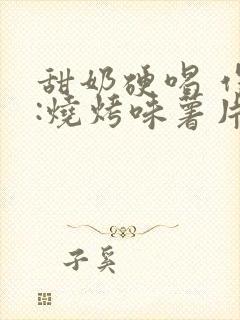 甜奶硬唱
:燒烤味薯片
子奚